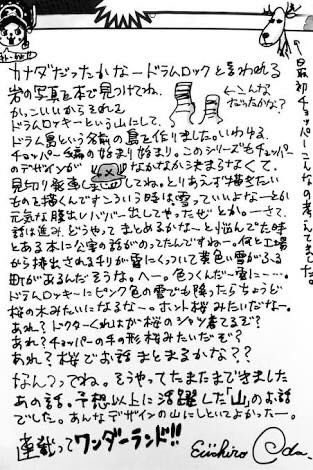 カナダだったかなードラムロックと言われる
岩の写真を本で見つけてね、
かっこいいからそれを
ドラムロッキーという山にして、
←こんな
だったかな?
ドラム島という名前の島を作りました。いわゆる、
チョッパー編の始まり始まり。このシリーズもチョッパー
のデザインがなかなか決まらなくて、
見切り発進してね。とりあえず描きたい
ものを描くんですこういう時は雪っていいよなーとか
元気な腹出しババー出してやったぜとかー。さて、
話は進み、どうやってまとめるかなーと悩んでた時
とある本に公害の話がのってたんですねー。何と工場
から排出されるチリが雪にくっついて黄色い雪がふる
町があるんだそうな。へー。色つくんだ〜雪に……。
ドラムロッキーにピンク色の雪でも降ったらちょうど
桜の木みたいになるなー。ホント桜みたいだなー。
あれ?ドクターくれはが桜のシャツ着てるぞ?
あれ?チョッパーの手の形桜みたいだぞ?
あれ?桜でお話まとまるかな??
なんつってね。そうやってたまたまできました
あの話。予想以上に活躍した「山」のお話
でした。あんなデザインの山にしといてよかったー。
連載ってワンダーランド!!
Eiichiro Oda.
最初チョッパーこんなの考えてました。